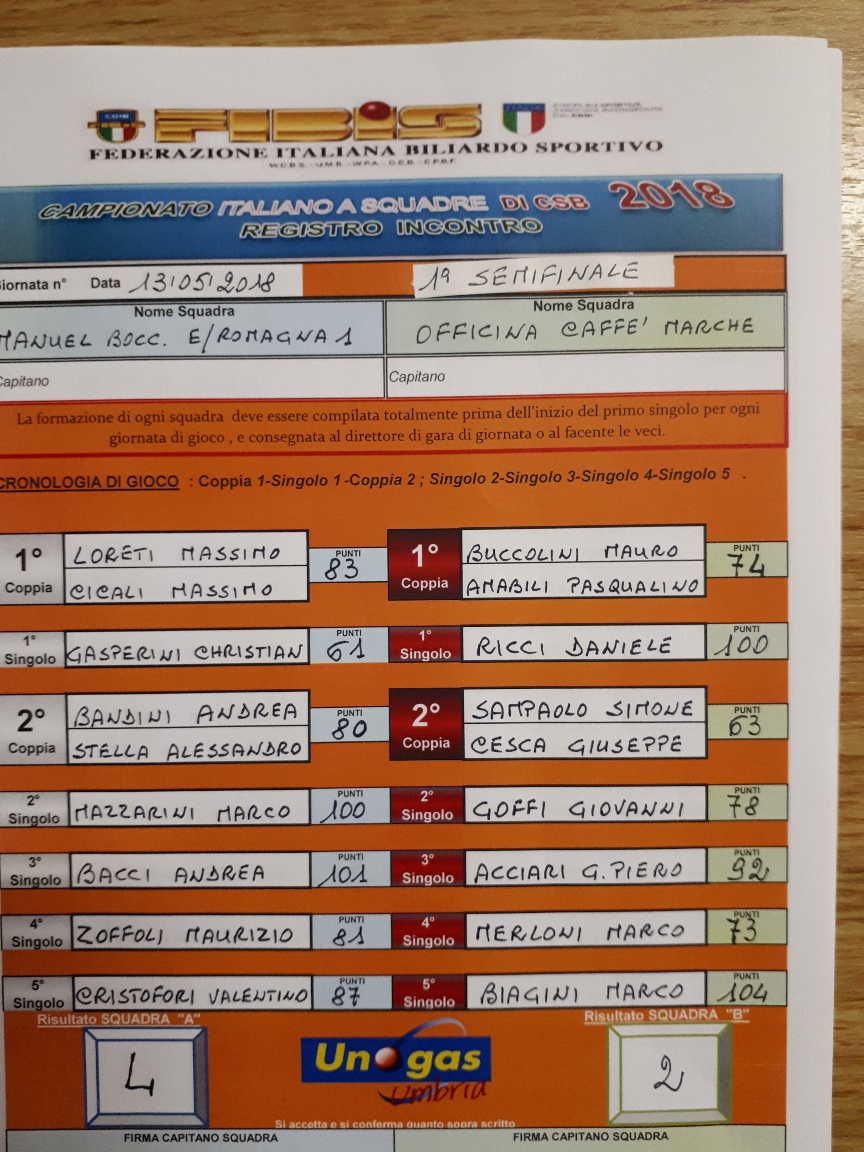 CONI FIBIS
FEDERAZIONE ITALIANA BILIARDO SPORTIVO
W.C.B.S. - U.M.B. - W.P.A. - C.E.B. - E.P.B.F.
CAMPIONATO ITALIANO A SQUADRE DI CSB 2018
REGISTRO INCONTRO
iornata n° Data 13/05/2018 1ª SEMIFINALE
Nome Squadra Nome Squadra
MANUEL BOCC. E/ROMAGNA 1 OFFICINA CAFFE' MARCHE
Capitano Capitano
La formazione di ogni squadra deve essere compilata totalmente prima dell'inizio del primo singolo per ogni
giornata di gioco , e consegnata al direttore di gara di giornata o al facente le veci.
CRONOLOGIA DI GIOCO : Coppia 1-Singolo 1 -Coppia 2 ; Singolo 2-Singolo 3-Singolo 4-Singolo 5 .
1° Coppia LORETI MASSIMO PUNTI 83 1° Coppia BUCCOLINI MAURO PUNTI 74
CICALI MASSIMO AMABILI PASQUALINO
1° Singolo GASPERINI CHRISTIAN PUNTI 61 1° Singolo RICCI DANIELE PUNTI 100
2° Coppia BANDINI ANDREA PUNTI 80 2° Coppia SAMPAOLO SIMONE PUNTI 63
STELLA ALESSANDRO CESCA GIUSEPPE
2° Singolo MAZZARINI MARCO PUNTI 100 2° Singolo GOFFI GIOVANNI PUNTI 78
3° Singolo BACCI ANDREA PUNTI 101 3° Singolo ACCIARI G.PIERO PUNTI 92
4° Singolo ZOFFOLI MAURIZIO PUNTI 81 4° Singolo MERLONI MARCO PUNTI 73
5° Singolo CRISTOFORI VALENTINO PUNTI 87 5° Singolo BIAGINI MARCO PUNTI 104
Risultato SQUADRA "A" Risultato SQUADRA "B"
4 Unogas 2
Umbria
Si accetta e si conferma quanto sopra scritto
FIRMA CAPITANO SQUADRA FIRMA CAPITANO SQUADRA